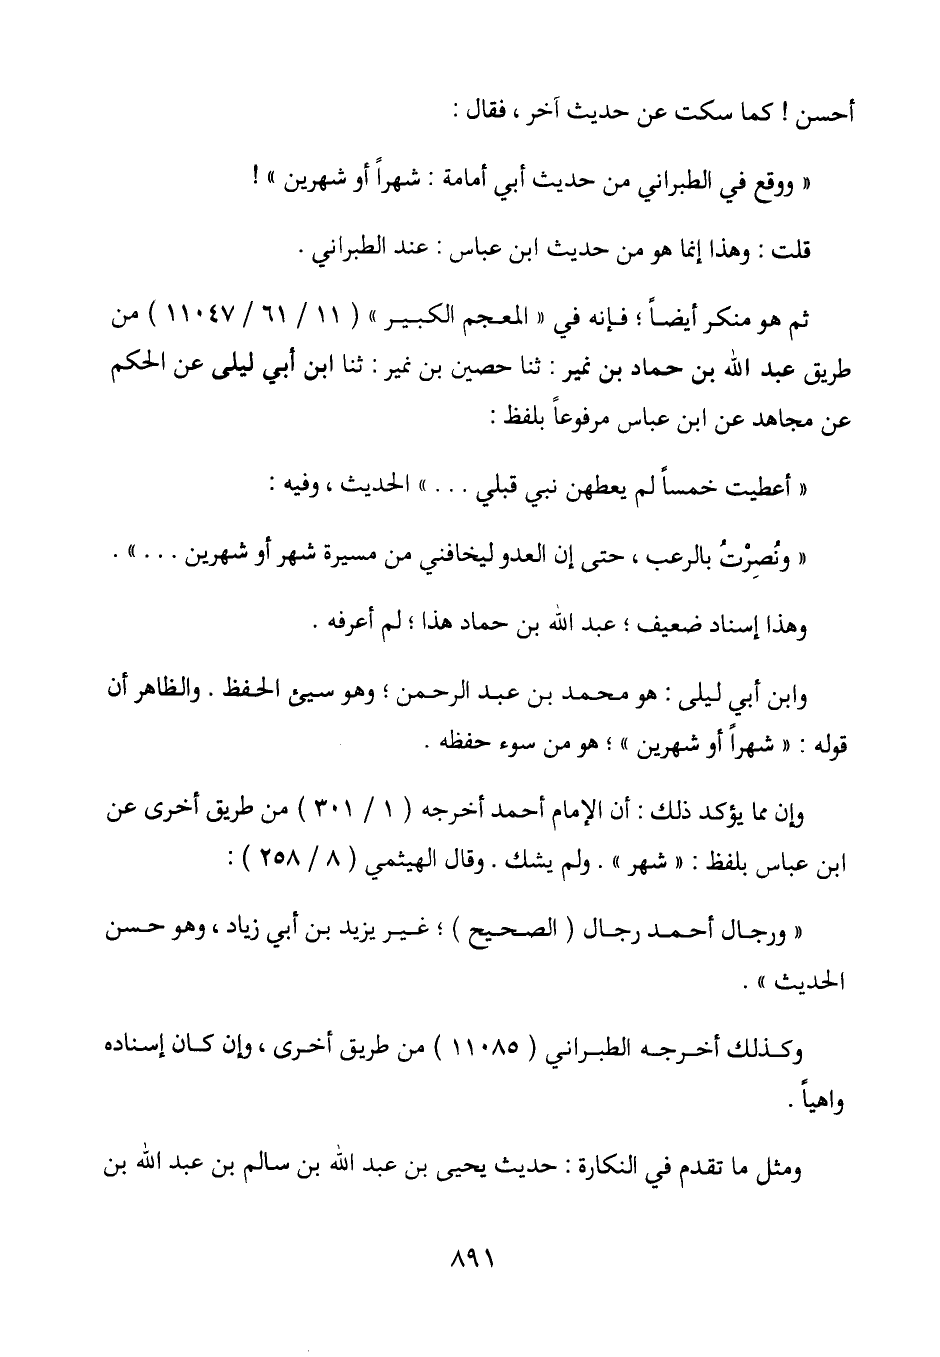 أحسن ! كما سكت عن حديث آخر ، فقال :
« ووقع في الطبراني من حديث أبي أمامة : شهراً أو شهرين » !
قلت : وهذا إنما هو من حديث ابن عباس : عند الطبراني .
ثم هو منكر أيضاً ؛ فإنه في « المعجم الكبير » ( ١١ / ٦١ / ١١٠٤٧ ) من
طريق عبد الله بن حماد بن نمير : ثنا حصين بن نمير : ثنا ابن أبي ليلى عن الحكم
عن مجاهد عن ابن عباس مرفوعاً بلفظ :
« أعطيت خمساً لم يعطهن نبي قبلي . . . » الحديث ، وفيه :
« ونُصِرْتُ بالرعب ، حتى إن العدو ليخافني من مسيرة شهر أو شهرين . . . » .
وهذا إسناد ضعيف ؛ عبد الله بن حماد هذا ؛ لم أعرفه .
وابن أبي ليلى : هو محمد بن عبد الرحمن ؛ وهو سيئ الحفظ . والظاهر أن
قوله : « شهراً أو شهرين » ؛ هو من سوء حفظه .
وإن مما يؤكد ذلك : أن الإمام أحمد أخرجه ( ١ / ٣٠١ ) من طريق أخرى عن
ابن عباس بلفظ : « شهر » . ولم يشك . وقال الهيثمي ( ٨ / ٢٥٨ ) :
« ورجال أحمد رجال ( الصحيح ) ؛ غير يزيد بن أبي زياد ، وهو حسن
الحديث » .
وكذلك أخرجه الطبراني ( ١١٠٨٥ ) من طريق أخرى ، وإن كان إسناده
واهياً .
ومثل ما تقدم في النكارة : حديث يحيى بن عبد الله بن سالم بن عبد الله بن
٨٩١